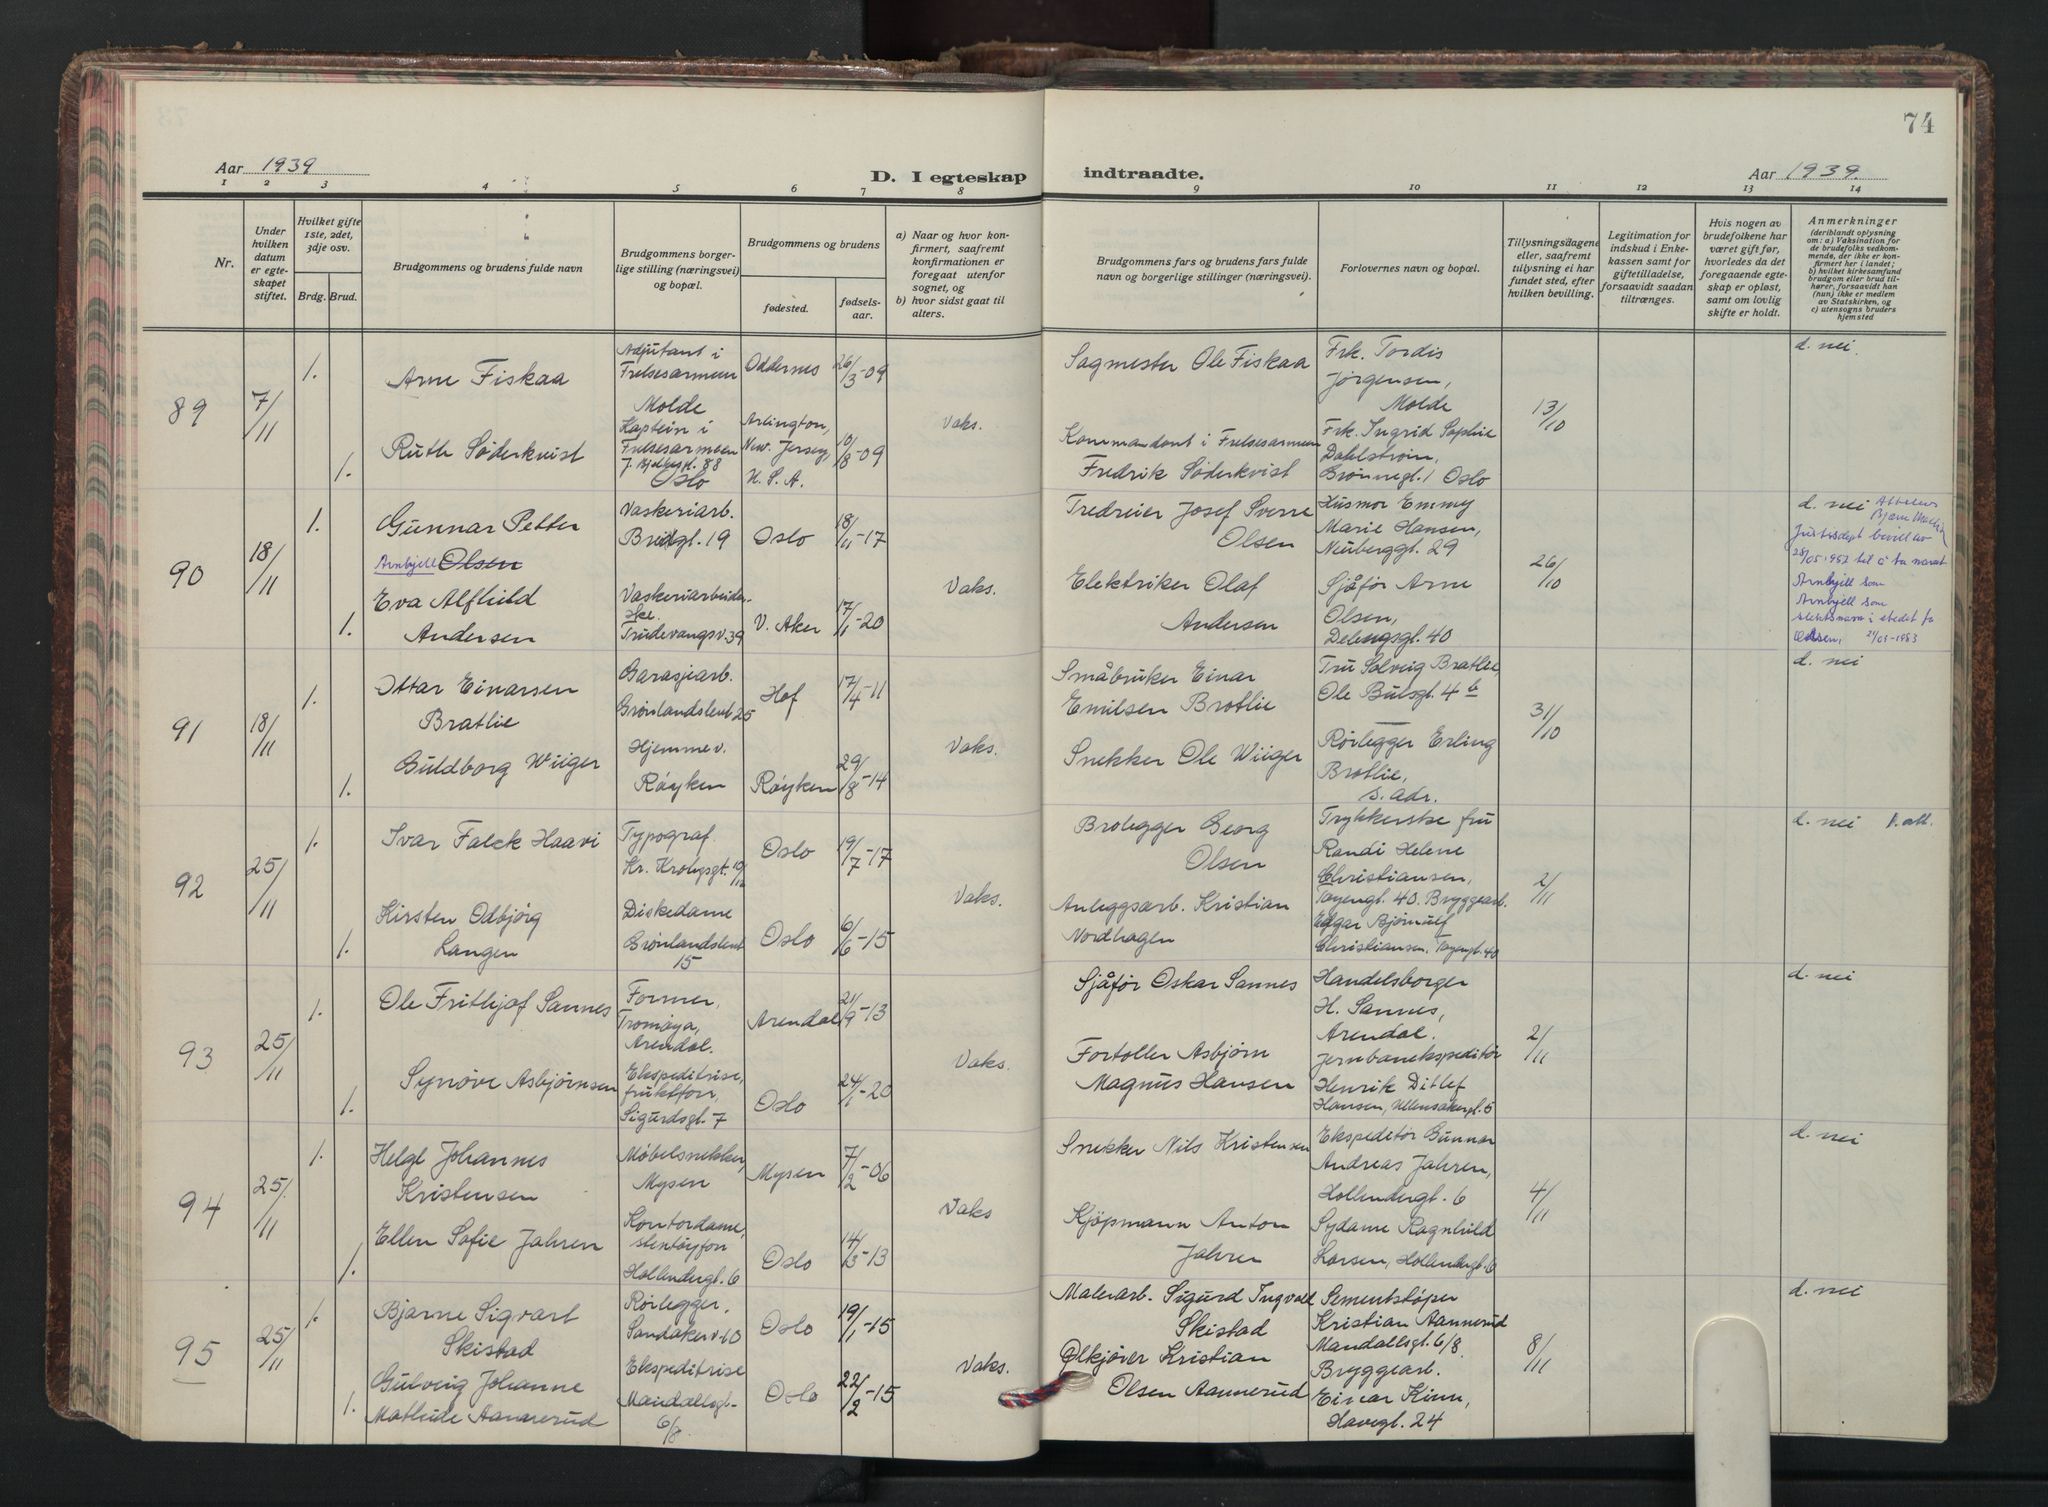 74
Aar 1939
D. I egteskap
indtraadte.
Aar 1939.
1 2 3 4 5 6 7 8 9 10 11 12 13 14
Nr.
Under hvilken datum er egteskapet stiftet.
Hvilket gifte 1ste, 2det, 3dje osv.
Brdg. Brud.
Brudgommens og brudens fulde navn
Brudgommens borgerlige stilling (næringsvei) og bopæl.
Brudgommens og brudens
fødested.
fødselsaar.
a) Naar og hvor konfirmert, saafremt konfirmationen er foregaat utenfor sognet, og
b) hvor sidst gaat til alters.
Brudgommens fars og brudens fars fulde navn og borgerlige stillinger (næringsvei).
Forlovernes navn og bopæl.
Tillysningsdagene eller, saafremt tillysning ei har fundet sted, efter hvilken bevilling.
Legitimation for indskud i Enkekassen samt for giftetilladelse, forsaavidt saadan tiltrænges.
Hvis nogen av brudefolkene har været gift før, hvorledes da det foregaaende egteskap er opløst, samt om lovlig skifte er holdt.
Anmerkninger
(deriblandt oplysning om: a) Vaksination for de brudefolks vedkommende, der ikke er konfirmert her i landet; b) hvilket kirkesamfund brudgom eller brud tilhører, forsaavidt han (hun) ikke er medlem av Statskirken, og c) utensogns bruders hjemsted
89
7/11
1.
Arne Fiskaa
Adjutant i
Frelsesarmeen
Molde
Oddernes
26/3-09
1.
Ruth Søderkvist
Kaptein i
Frelsesarmeen
J. Bjelkesgt. 88
Oslo
Arlington,
New Jersey
U.S.A.
10/8-09
Vaks.
Sagmester Ole Fiskaa
Kommandant i Frelsesarmeen
Fredrik Søderkvist
Frk. Tordis
Jørgensen,
Molde
Frk. Ingrid Sophie
Dahlstrøm,
Brønnegt. 1 Oslo
13/10
d. nei.
90
18/11
1.
Gunnar Petter
Arnbjell Olsen
Vaskeriarb.
Bredgt. 19
Oslo
18/11-17
1.
Eva Alfhild
Andersen
Vaskeriarbeider-
ske.
Trudevangsv. 39
V. Aker
17/1-20
Vaks.
Tredreier Josef Sverre
Olsen
Elektriker Olaf
Andersen
Husmor Emmy
Marie Hansen,
Neuberggt. 29
Sjåfør Arne
Olsen,
Delengsgt. 40
26/10
d. nei
Justisdept bevill av
Arnbjell som
Arnbjell som
slektsnavn i stedet for
Olsen,
91
18/11
1.
Ottar Einarsen
Bratlie
Garasjearb.
Grønlandsleret 25
Hof
17/4-11
1.
Guldborg Wiiger
Hjemmev.
Røyken
Røyken
29/8-14
Vaks.
Småbruker Einar
Emilsen Bratlie
Snekker Ole Wiiger
Fru Solveig Bratlie,
Ole Bulsgt. 4 b
Rørlegger Erling
Bratlie,
s. adr.
31/10
d. nei
92
25/11
1.
Ivar Falck Haavi
Typograf
Kr. Krohgsgt. 19/
Oslo
19/7-17
1.
Kirsten Odbjørg
Langen
Diskedame
Grønlandsleret
15
Oslo
6/6-15
Vaks.
Brolegger Georg
Olsen
Anleggsarb. Kristian
Nordhagen
Trykkerske fru
Randi Helene
Christiansen,
Tøyengt. 40. Bryggearb.
Edgar Bjørnulf
Christiansen. Tøyengt. 40
2/11
d. nei 1. att.
93
25/11
1.
Ole Frithjof Sannes
Former,
Tromøya,
Arendal.
Arendal
21/9-13
1.
Synøve Asbjørnsen
Ekspeditrise,
fruktforr.
Sigurdsgt. 7
Oslo
24/1-20
Vaks.
Sjåfør Oskar Sannes
Fortoller Asbjørn
Magnus Hansen
Handelsborger
H. Sannes,
Arendal.
Jernbanekspeditør
Henrik Ditlef
Hansen, Ullensakergt. 5
2/11
d. nei
94
25/11
1.
Helge Johannes
Kristensen
Møbelsnekker,
Mysen
Mysen
7/2-06
1.
Ellen Sofie Jahren
Kontordame,
stentøyforr.
Hollendergt. 6
Oslo
14/3-13
Vaks
Snekker Nils Kristensen
Kjøpmann Anton
Jahren
Ekspeditør Gunnar
Andreas Jahren,
Hollendergt. 6
Sydame Ragnhild
Larsen, Hollendergt. 6
4/11
d. nei
95
25/11
1.
Bjarne Sigvart
Skistad
Rørlegger,
Sandakerv. 10
Oslo
19/1-15
1.
Gulveig Johanne
Mathilde Aannerud
Ekspeditrise
Mandallsgt-
6/8
Oslo
22/2-15
Vaks.
Malerarb. Sigurd Ingvald
Skistad
Ølkjører Kristian
Olsen Aannerud
Sementstøper
Kristian Aannerud
Mandallsgt. 6/8.
Bryggearb.
Einar Kinn,
Havegt. 24
8/11
d. nei